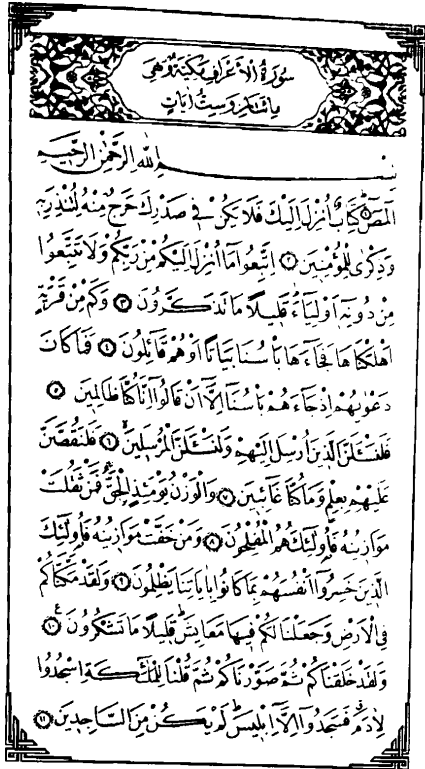 سُورَةُ الْاَعْرَافِ مَكِّيَّةٌ وَهِيَ
مِائَتَانِ وَسِتُّ اٰيَاتٍ
بِسْمِ اللّٰهِ الرَّحْمٰنِ الرَّحٖيمِ
الٓمٓصٓ ﴿١﴾ كِتَابٌ اُنْزِلَ اِلَيْكَ فَلَا يَكُنْ فٖي صَدْرِكَ حَرَجٌ مِنْهُ لِتُنْذِرَ بِهٖ
وَذِكْرٰى لِلْمُؤْمِنٖينَ ﴿٢﴾ اِتَّبِعُوا مَٓا اُنْزِلَ اِلَيْكُمْ مِنْ رَبِّكُمْ وَلَا تَتَّبِعُوا
مِنْ دُونِهٖٓ اَوْلِيَٓاءَ قَلٖيلًا مَا تَذَكَّرُونَ ﴿٣﴾ وَكَمْ مِنْ قَرْيَةٍ
اَهْلَكْنَاهَا فَجَٓاءَهَا بَأْسُنَا بَيَاتًا اَوْ هُمْ قَٓائِلُونَ ﴿٤﴾ فَمَا كَانَ
دَعْوٰيهُمْ اِذْ جَٓاءَهُمْ بَأْسُنَٓا اِلَّٓا اَنْ قَالُٓوا اِنَّا كُنَّا ظَالِمٖينَ ﴿٥﴾
فَلَنَسْـَٔلَنَّ الَّذٖينَ اُرْسِلَ اِلَيْهِمْ وَلَنَسْـَٔلَنَّ الْمُرْسَلٖينَ ﴿٦﴾ فَلَنَقُصَّنَّ
عَلَيْهِمْ بِعِلْمٍ وَمَا كُنَّا غَٓائِبٖينَ ﴿٧﴾ وَالْوَزْنُ يَوْمَئِذٍ الْحَقُّ فَمَنْ ثَقُلَتْ
مَوَازٖينُهُ فَاُولٰٓئِكَ هُمُ الْمُفْلِحُونَ ﴿٨﴾ وَمَنْ خَفَّتْ مَوَازٖينُهُ فَاُولٰٓئِكَ
الَّذٖينَ خَسِرُٓوا اَنْفُسَهُمْ بِمَا كَانُوا بِاٰيَاتِنَا يَظْلِمُونَ ﴿٩﴾ وَلَقَدْ مَكَّنَّاكُمْ
فِي الْاَرْضِ وَجَعَلْنَا لَكُمْ فٖيهَا مَعَايِشَ قَلٖيلًا مَا تَشْكُرُونَ ﴿١٠﴾
وَلَقَدْ خَلَقْنَاكُمْ ثُمَّ صَوَّرْنَاكُمْ ثُمَّ قُلْنَا لِلْمَلٰٓئِكَةِ اسْجُدُوا
لِاٰدَمَ فَسَجَدُٓوا اِلَّٓا اِبْلٖيسَ لَمْ يَكُنْ مِنَ السَّاجِدٖينَ ﴿١١﴾